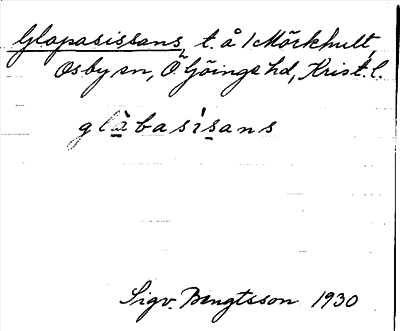 Glapasissans, t. å 1 Mörkhult,
Osby sn, Ö. Göinge hd, Krist. l.
glàbasìsans
Sigv. Bengtsson 1930